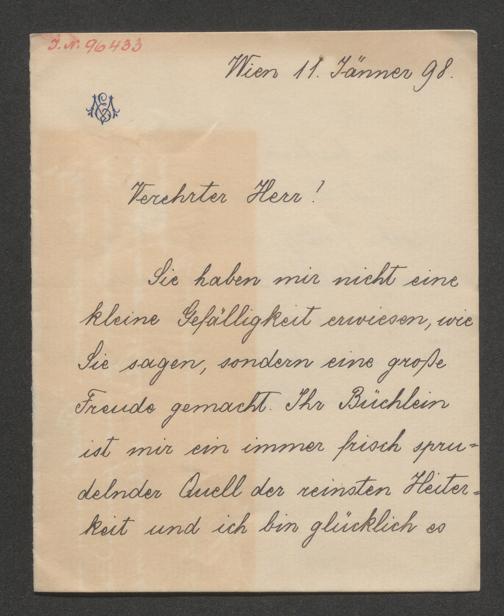 J. N. 96433
Wien 11. Jänner 98.
Verehrter Herr!
Sie haben mir nicht eine
kleine Gefälligkeit erwiesen, wie
Sie sagen, sondern eine große
Freude gemacht. Ihr Büchlein
ist mir ein immer frisch spru=
delnder Quell der reinsten Heiter=
keit und ich bin glücklich es